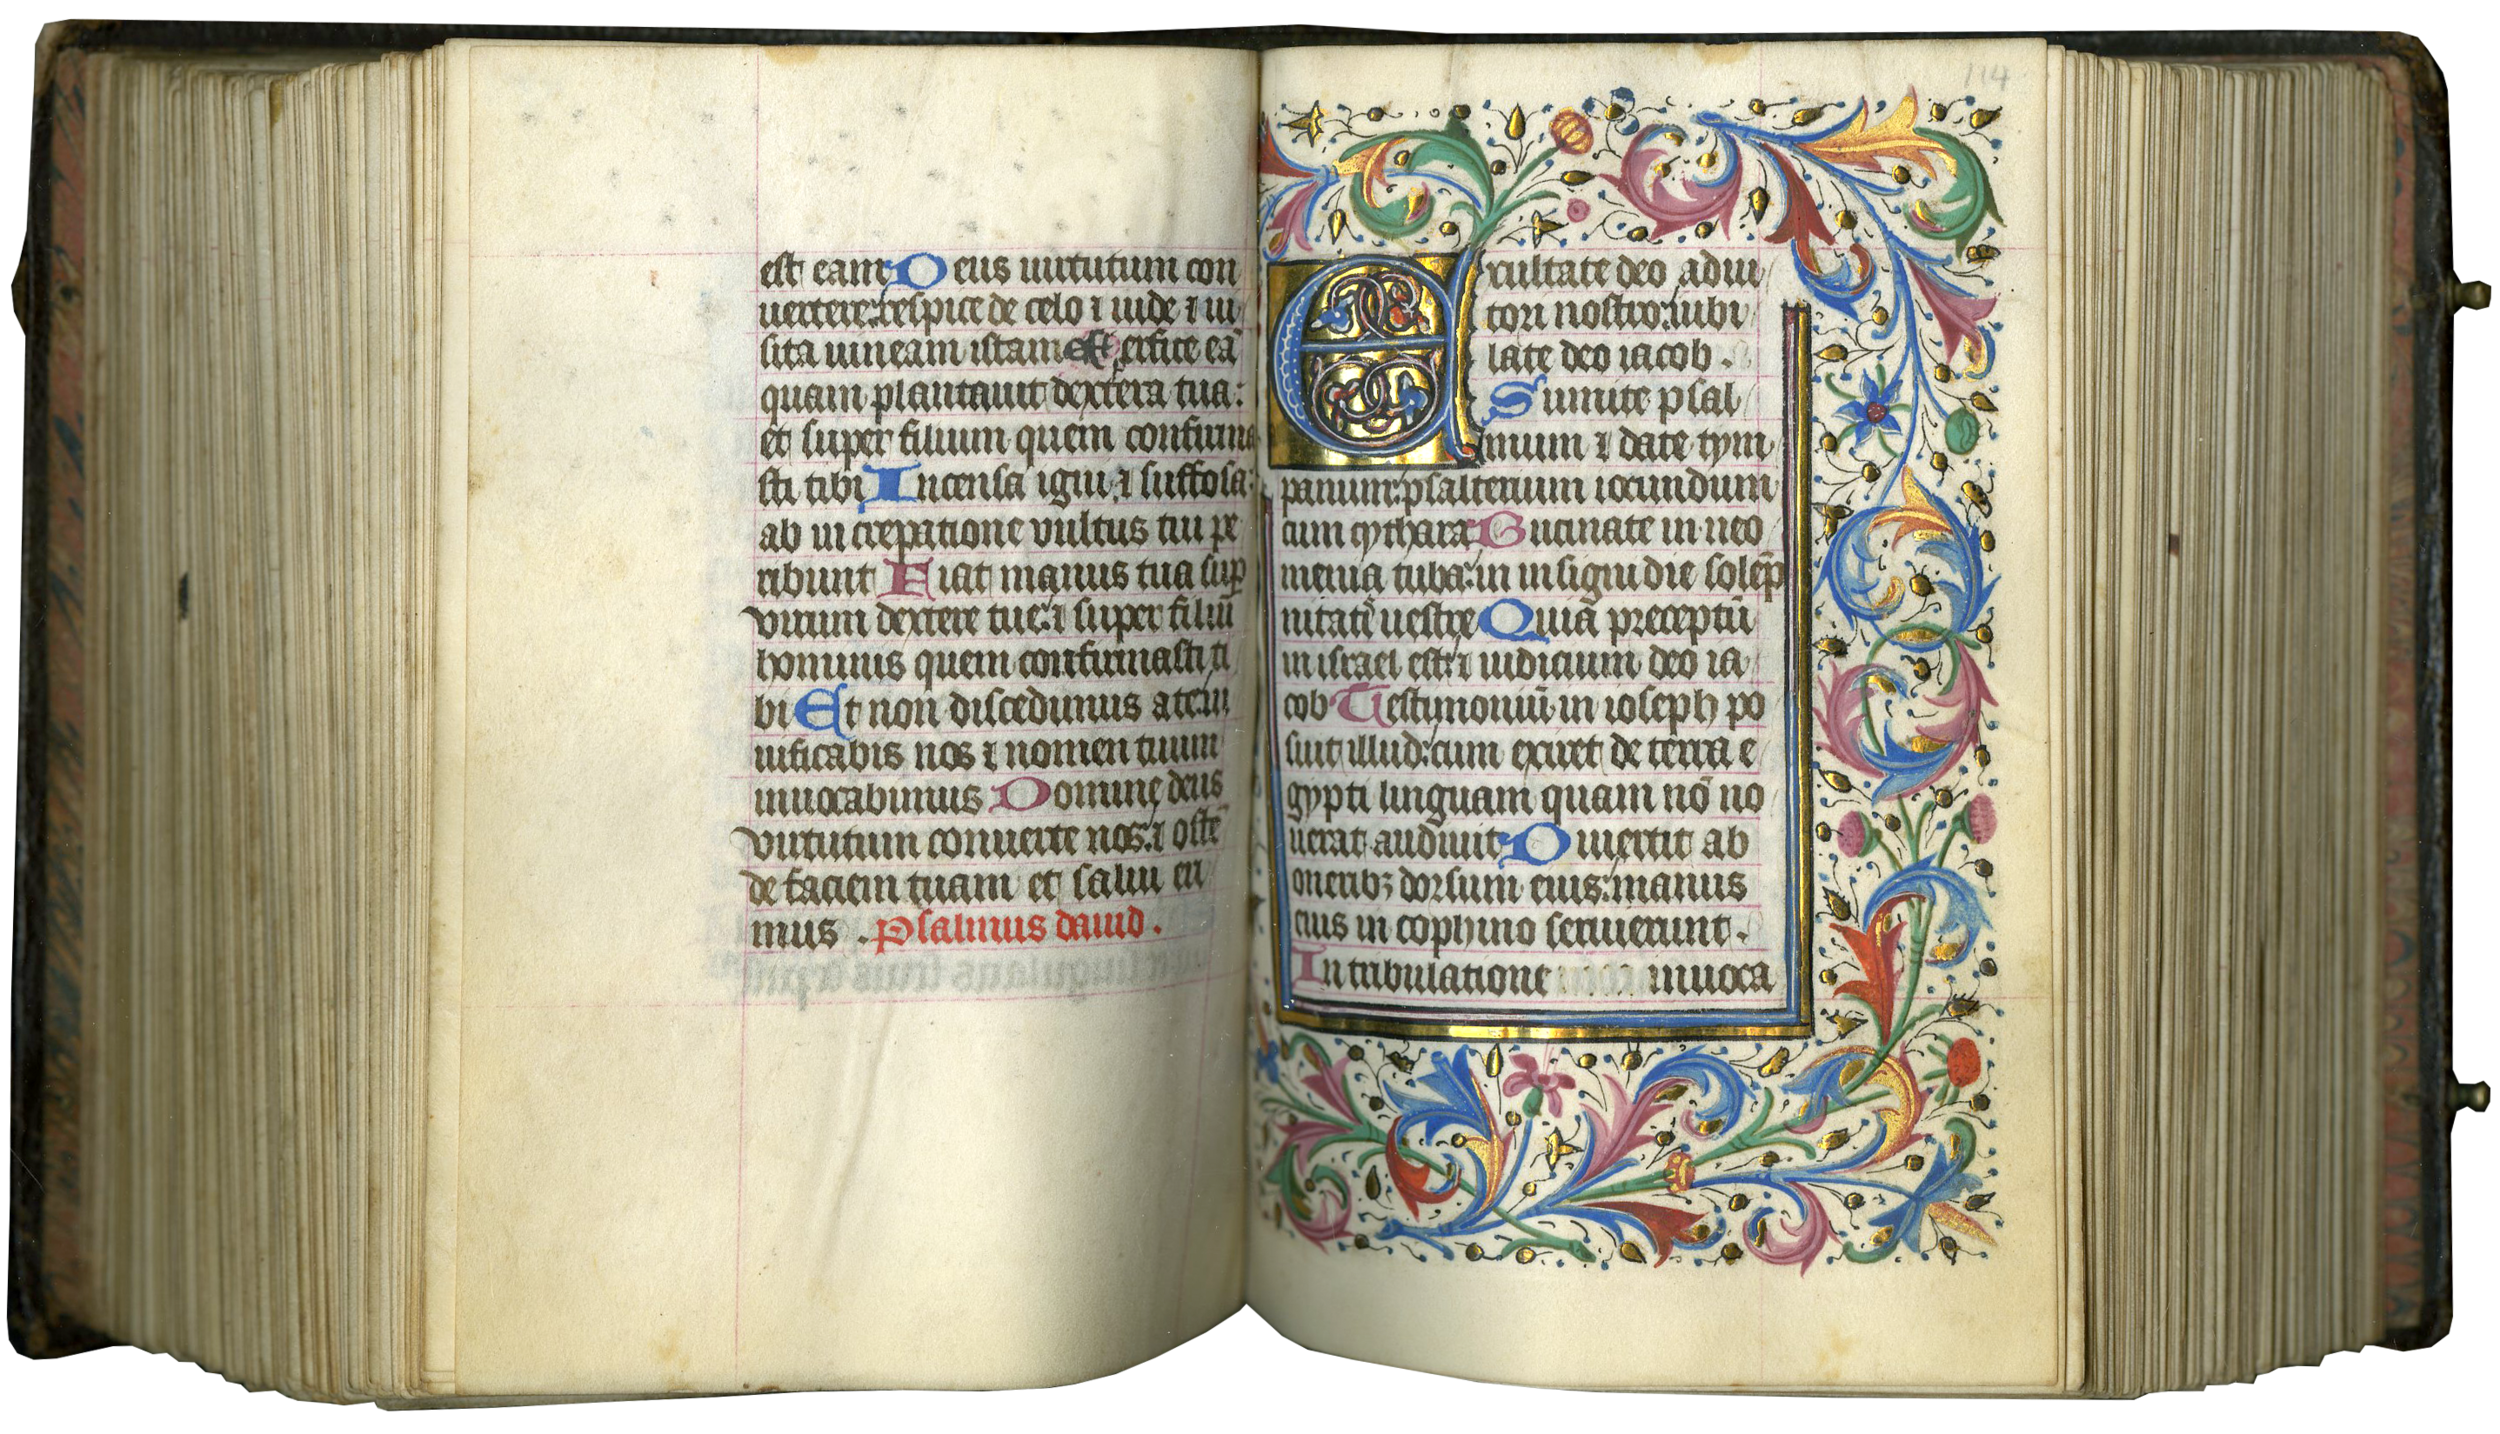 est eam Deus uirtutum con
uertere: respice de celo ⁊ uide ⁊ ui
sita uineam istam Et perfice eā
quam plantauit dextera tua:
et super filium quem confirma
sti tibi Incensa igni: ⁊ suffosa:
ab in crepatione vultus tui pe
ribunt Fiat manus tua sup
virum dextere tue: ⁊ super filiū
hominis quem confirmasti ti
bi Et non discedimus a te: ui
uificabis nos ⁊ nomen tuum
inuocabimus Domine deus
virtutum conuerte nos: ⁊ ostē
de faciem tuam et salui eri
mus . Psalmus dauid .
114
Exultate deo adiu
tori nostro: iubi
late deo iacob .
Sumite psal
mum ⁊ date tym
panum: psalterium iocundum
cum cythara Bucinate in neo
menia tuba: in insigni die solēp
nitatis uestre Quia preceptū
in israel est: ⁊ iudicium deo ia
cob Testimoniū in ioseph po
suit illud: cum exiret de terra e
gypti linguam quam nō no
uerat audiuit Diuertit ab
oneribꝫ dorsum eius: manus
eius in cophino seruierunt .
In tribulatione inuoca